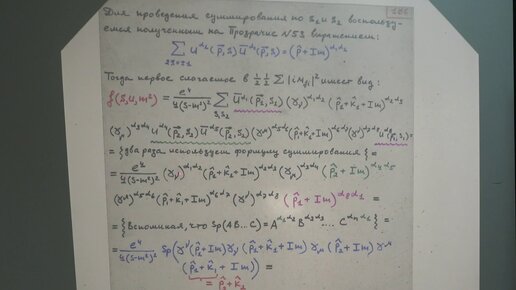 186
Для проведения суммирования по s₁ и s₂ воспользу-
емся полученным на Прозрачке №53 выражением:
∑ u^{α₁}(p̄,s) ū^{α₂}(p̄,s) = (p̂ + Im)^{α₁α₂}
Тогда первое слагаемое в ½ ½ ∑ |iM_{fi}|² имеет вид:
f(s,u,m²) = e⁴/4(s-m²)² ∑_{s₁s₂} ū^{α₁}(p̄₂,s₂) (γ_ν)^{α₁α₂} (p̂₂+k̂₂+Im)^{α₂α₃}
(γ_μ)^{α₃α₄} u^{α₄}(p̄₁,s₁) ū^{α₅}(p̄₁,s₁) (γ^μ)^{α₅α₆} (p̂₁+k̂₁+Im)^{α₆α₇} (γ^ν)^{α₇α₈} u^{α₈}(p̄₂,s₂) =
= {два раза используем формулу суммирования} =
= e⁴/4(s-m²)² (γ_ν)^{α₁α₂} (p̂₂+k̂₂+Im)^{α₂α₃} (γ_μ)^{α₃α₄} (p̂₁+Im)^{α₄α₅}
(γ^μ)^{α₅α₆} (p̂₁+k̂₁+Im)^{α₆α₇} (γ^ν)^{α₇α₈} (p̂₂+Im)^{α₈α₁} =
= {Вспоминая, что Sp(AB...C) = A^{α₁α₂} B^{α₂α₃} ... C^{αₙα₁}} =
= e⁴/4(s-m²)² Sp(γ^ν(p̂₂+Im)γ_ν (p̂₂+k̂₂+Im) γ_μ (p̂₁+Im) γ^μ
(p̂₁+k̂₁+Im)) =
= p̂₂+k̂₂